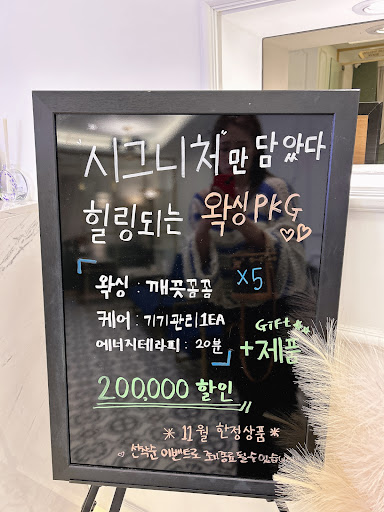 "시그니처"만 담았다
힐링되는 왁싱 PKG
왁싱 : 깨끗꼼꼼 X5
케어 : 기기관리 1EA
에너지테라피 : 20분
Gift
+제품
200,000 할인
※ 11월 한정상품 ※
선착순 이벤트로 조기종료될 수 있습니다